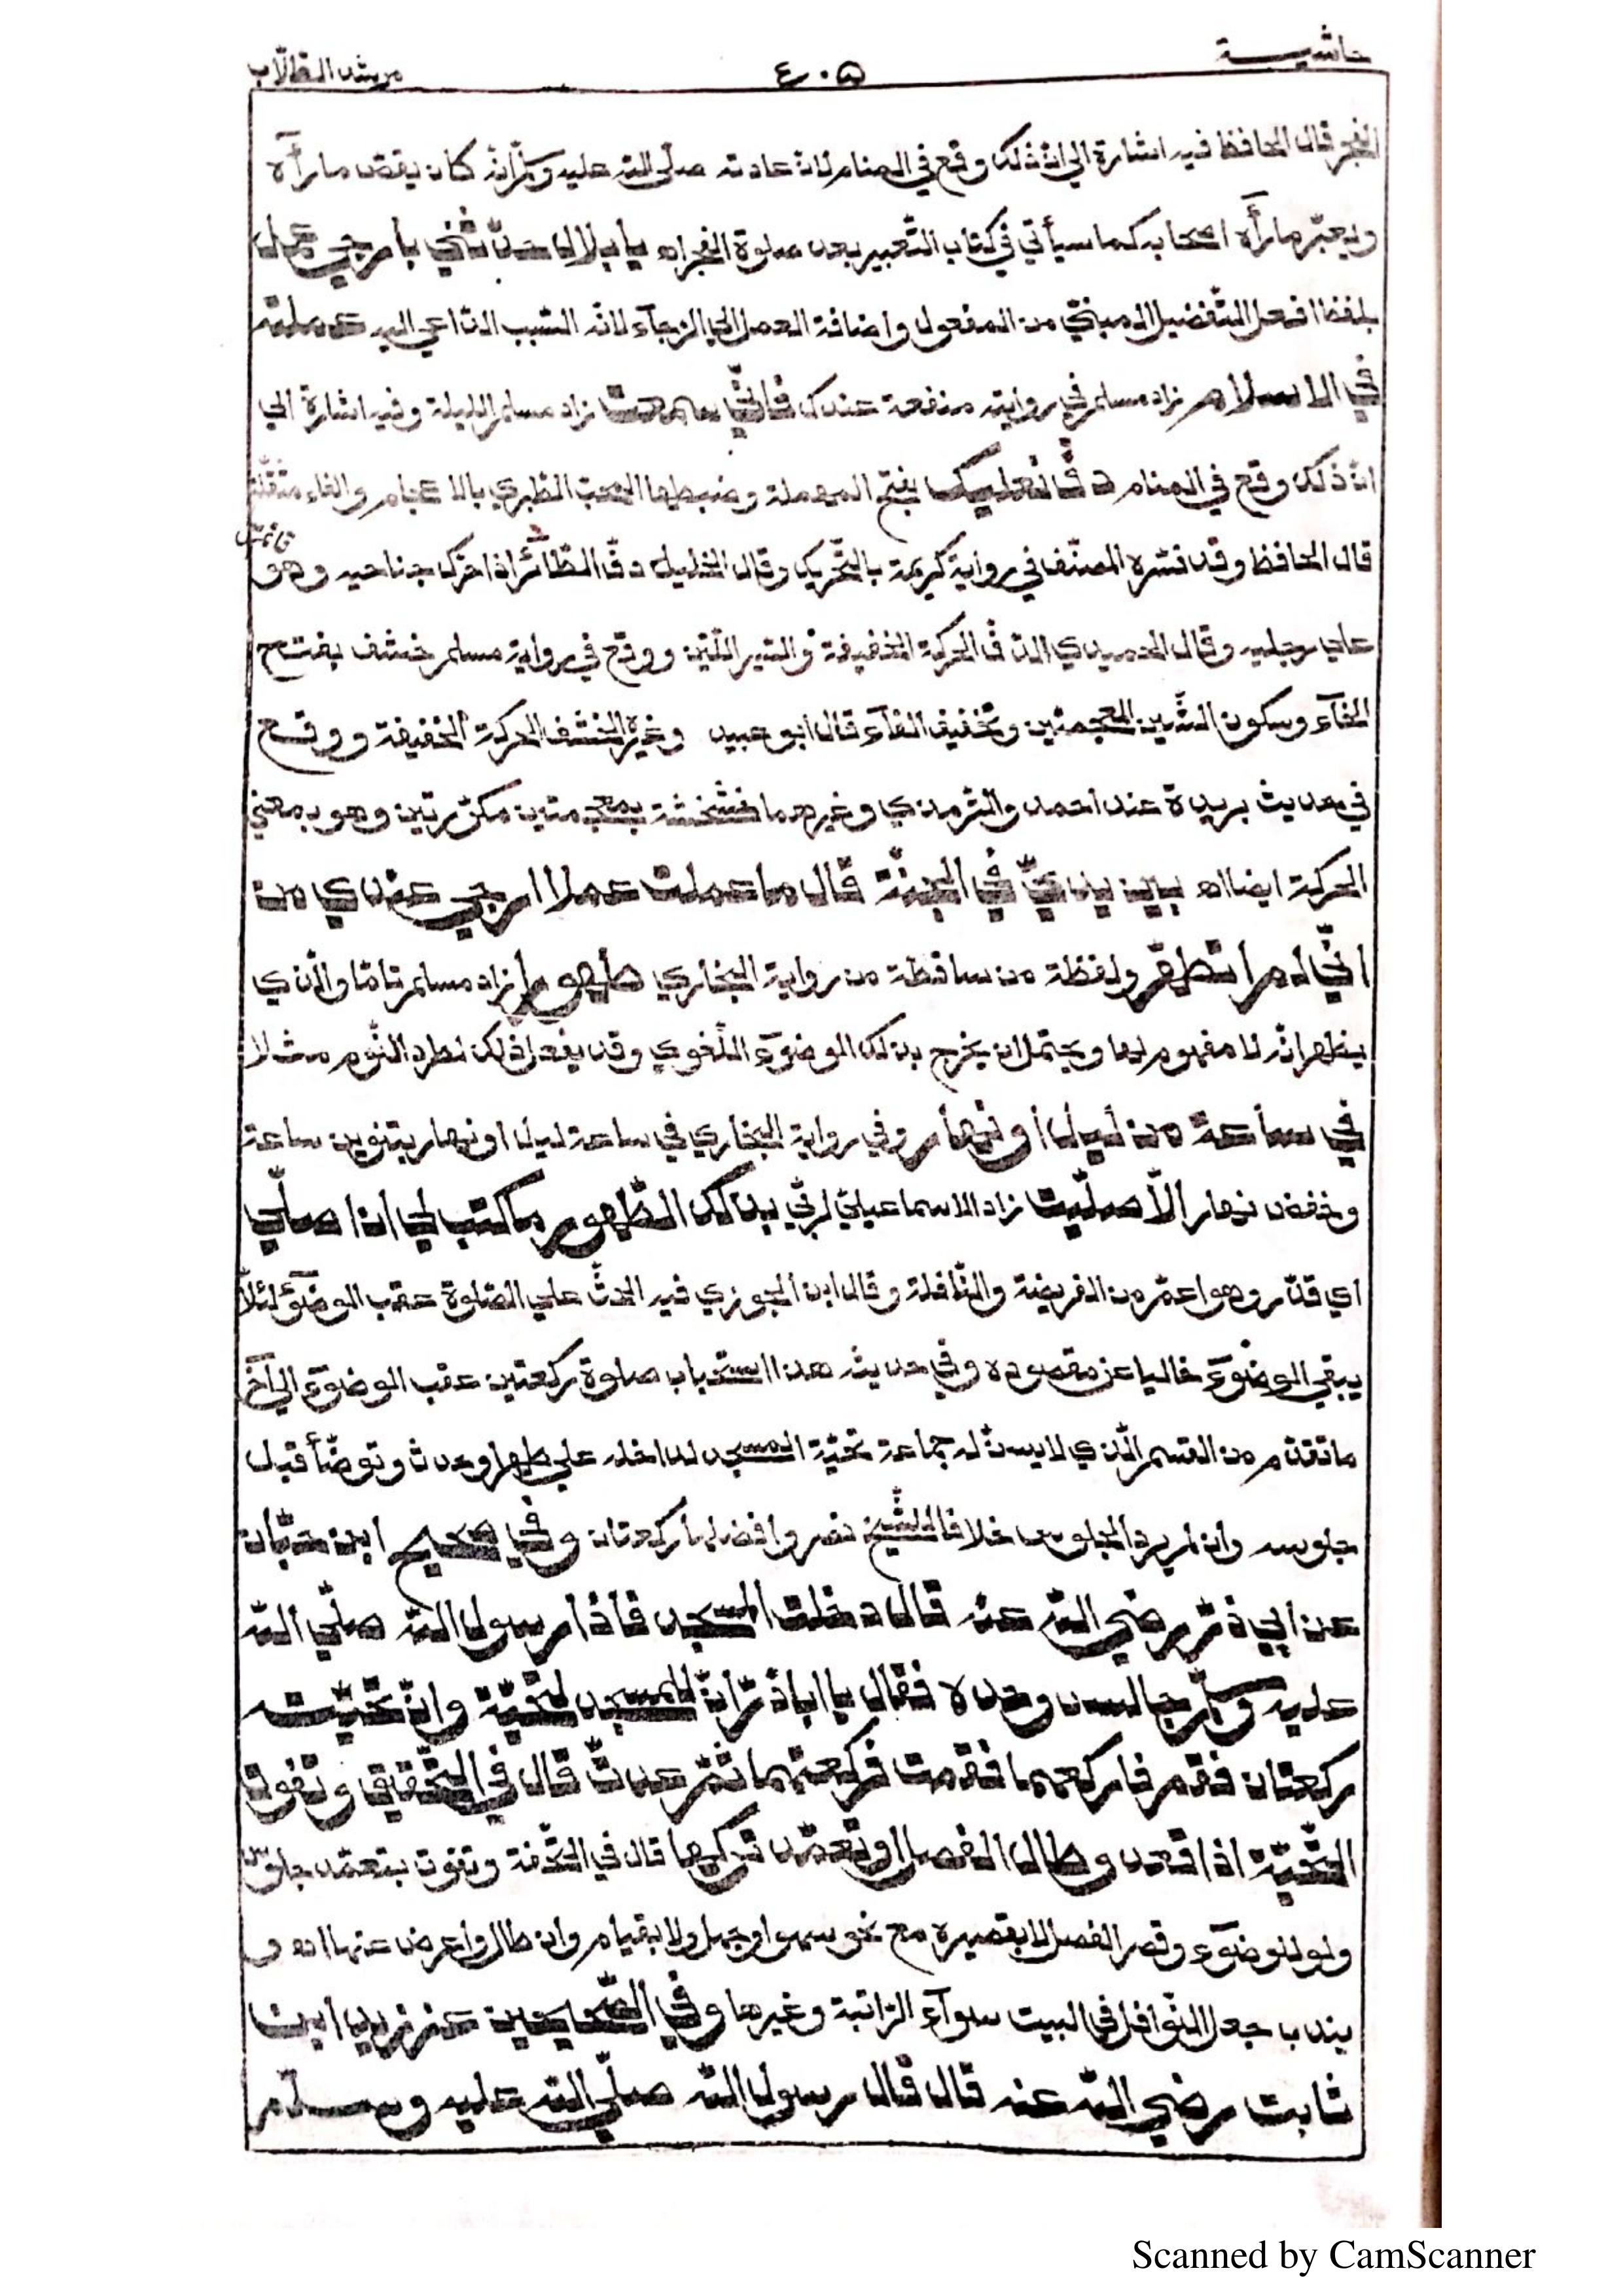 حاشية
٤٠٥
مرشد الطلّاب
الفجر قال الحافظ فيه اشارة الي انّ ذلك وقع في المنام لانّ عادته صلّي اللّه عليه وسلّم انّه كان يقصّ ما رآه
ويعبّر ما رآه اصحابه كما سيأتي في كتاب التّعبير بعد صلوة الفجر اه يا بلال حدّثني بأرجي عمل
بلفظ افعل التّفضيل المبنيّ من المفعول واضافة العمل الي الرّجآء لانّه السّبب الدّاعي اليه عملته
في الاسلام زاد مسلم في روايته منفعة عندك فانّي سمعت زاد مسلم الليلة وفيه اشارة الي
انّ ذلك وقع في المنام دفّ نعليك بفتح المهملة وضبطها المحبّ الطّبري بالاعجام والفاء مثقّلة
قال الحافظ وقد فسّره المصنّف في رواية كريمة بالتّحريك وقال الخليل دفّ الطّائر اذا حرّك جناحيه وهو قائم
علي رجليه وقال الحميدي الدّفّ الحركة الخفيفة والسّير اللّيّن ووقع في رواية مسلم خشف بفتح
الخآء وسكون الشّين المعجمتين وتخفيف الفآء قال ابو عبيد وغيره الخشف الحركة الخفيفة ووقع
في حديث بريدة عند احمد والتّرمذي وغيرهما خشخشة بمعجمتين مكرّرتين وهو بمعني
الحركة ايضا اه بين يديّ في الجنّة قال ما عملت عملا ارجي عندي من
انّي لم اتطهّر ولفظة من ساقطة من رواية البخاري طهورا زاد مسلم تامّا والّذي
يظهر انّه لا مفهوم لها ويحتمل ان يخرج بذلك الوضوء اللّغوي وقد يفعل ذلك لطرد النّوم مثلا
في ساعة من ليل أو نهار وفي رواية البخاري في ساعة ليل او نهار بتنوين ساعة
وخفض نهار الّا صلّيت زاد الاسماعيليّ لربّي بذلك الطّهور ما كتب لي ان اصلّي
اي قدّر وهو اعمّ من الفريضة والنّافلة وقال ابن الجوزي فيه الحثّ علي الصّلوة عقب الوضوء لئلّا
يبقي الوضوء خاليا عن مقصوده وفي حديثه هذا استحباب صلوة ركعتين عقب الوضوء الي آخر
ما تقدّم من القسم الّذي لا يسنّ له جماعة تحيّة المسجد لداخله علي طهر او حدث وتوضّأ قبل
جلوسه وان لم يرد الجلوس خلافا للشّيخ نصر وافضلها ركعتان وفي صحيح ابن حبّان
عن ابي ذرّ رضي اللّه عنه قال دخلت المسجد فاذا رسول اللّه صلّي اللّه
عليه وسلّم جالس وحده فقال يا اباذرّ انّ للمسجد لتحيّة وانّ تحيّته
ركعتان فقم فاركعهما فقمت فركعتهما ثمّ عدت قال في التّحقيق وتفوت
التّحيّة اذا قعد وطال الفصل او تعمّد تركها قال في التّحفة وتفوت بتعمّد جلوس
ولو للوضوء وقصر الفصل لا بقصيره مع نحو سهو او جهل ولا بقيام وان طال واعرض عنها اه و
يندب جعل النّوافل في البيت سوآء الرّاتبة وغيرها وفي الصّحيحين عن زيد ابن
ثابت رضي اللّه عنه قال قال رسول اللّه صلّي اللّه عليه وسلّم
Scanned by CamScanner